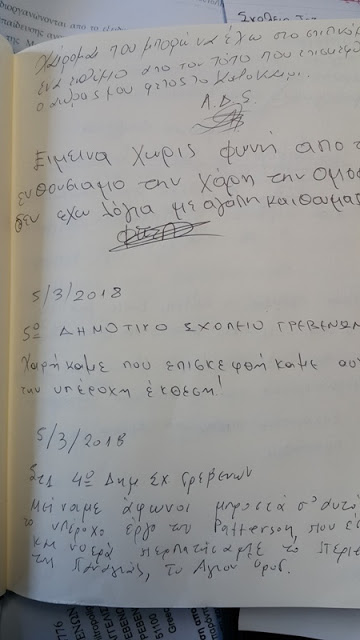 διοργανώνονται από το
Σχολείο Την
Χαίρομαι που μπορώ να έχω στο σπιτικό
ένα ενθύμιο από τον τόπο που επισκέφ
ο άνδρας μου φέτος το καλοκαίρι.
Λ.Δ.S.
Εμεινα χωρίς φωνή από τ
ενθουσιασμο την χάρη την ομο
δεν εχω λόγια με αγάπη και θαυμασ
5/3/2018
5ο ΔΗΜΟΤΙΚΟ ΣΧΟΛΕΙΟ ΓΡΕΒΕΝΩΝ
Χαρήκαμε που επισκεφθήκαμε αυ
την υπέροχη έκθεση!
5/3/2018
Στ1 4ο Δημ Σχ Γρεβενών
Μείναμε άφωνοι μπροστά σ' αυτό
το υπέροχο έργο του Patterson, που έ
και νοερά περπατήσαμε το περι
της Παναγιάς, το Άγιον Όρος.